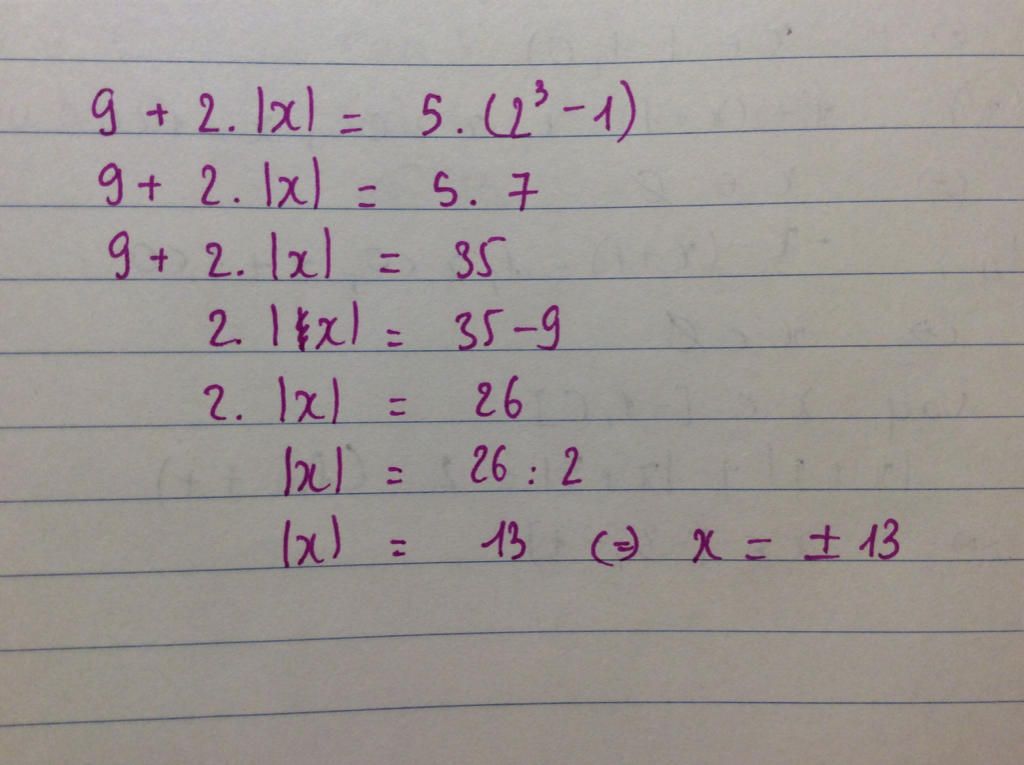 9 + 2. |x| = 5. (2³ - 1)
9 + 2. |x| = 5. 7
9 + 2. |x| = 35
2. |x| = 35 - 9
2. |x| = 26
|x| = 26 : 2
|x| = 13 (=) x = ± 13